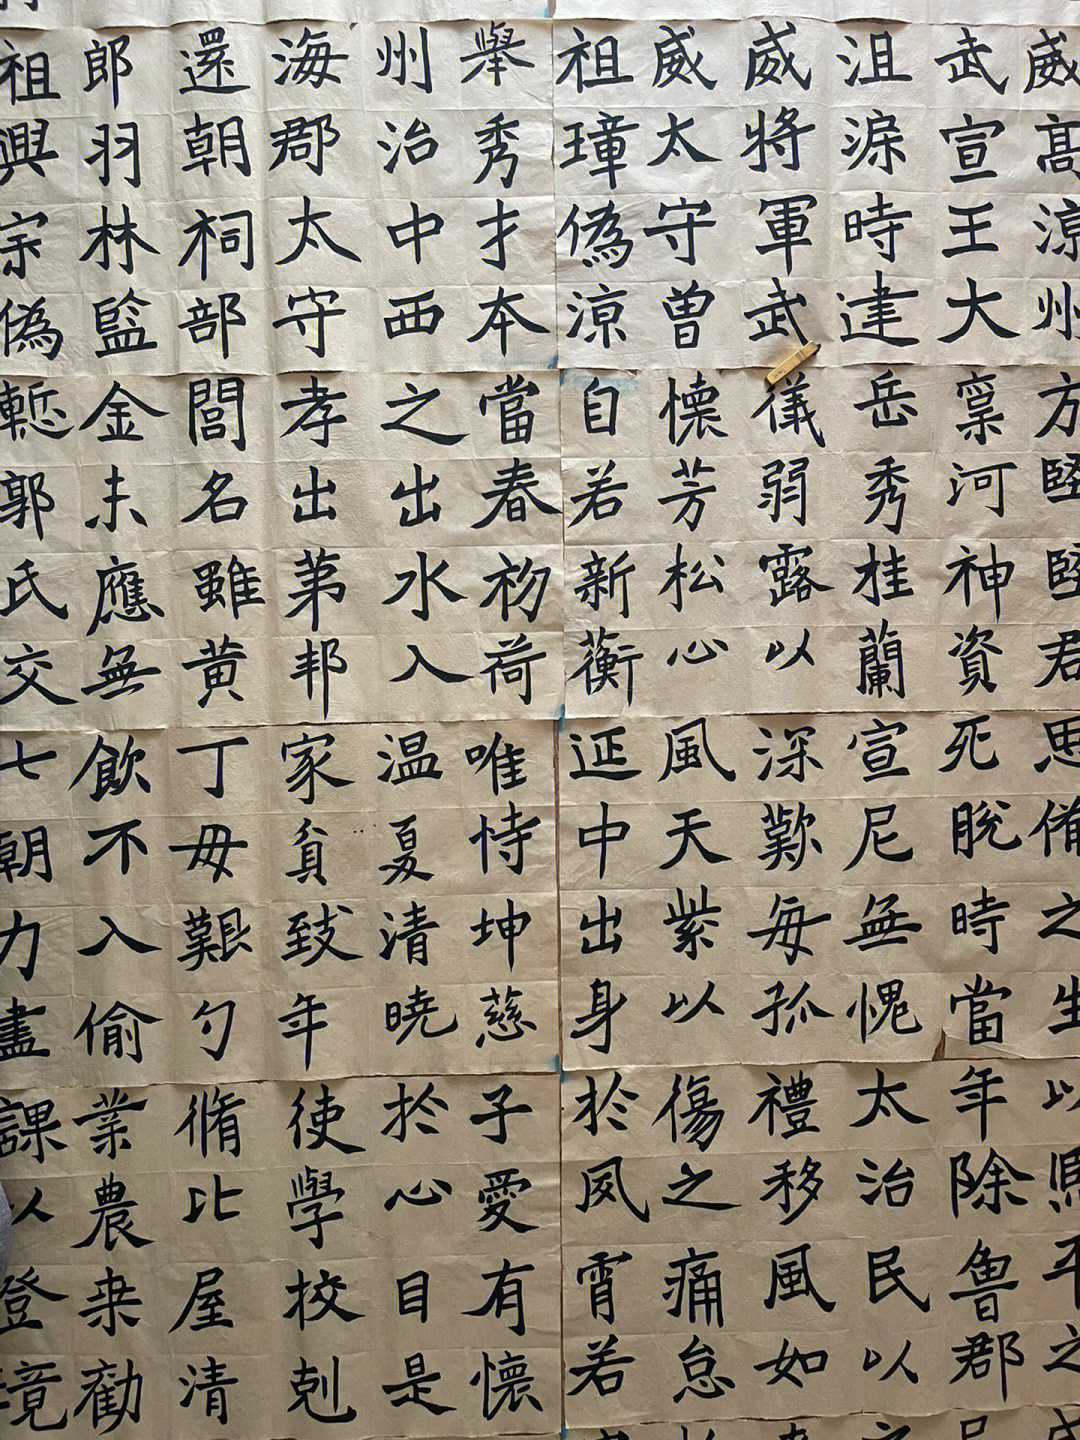 威高涼州
武宣王大
沮渠時建
威將軍武
威太守曾
祖璋偽涼
舉秀才本
州治中西
海郡太守
還朝祠部
郎羽林監
祖興宗偽
方堅堅君
稟河神資
岳秀桂蘭
儀弱露以
懷芳松心
自若新蘅
當春初荷
之出水入
孝出第邦
閭名雖黃
金未應無
慙郭氏交
思脩之生
死脫時當
宣尼無愧
深歎每孤
風天紫以
延中出身
唯恃坤慈
温夏清曉
家貧致年
丁毋艱勺
飲不入偷
七朝力盡
以熙平之
年除魯郡
太治民以
禮移風如
傷之痛怠
於夙宵若
子愛有懷
於心目是
使學校剋
脩比屋清
業農桒勸
課以登境